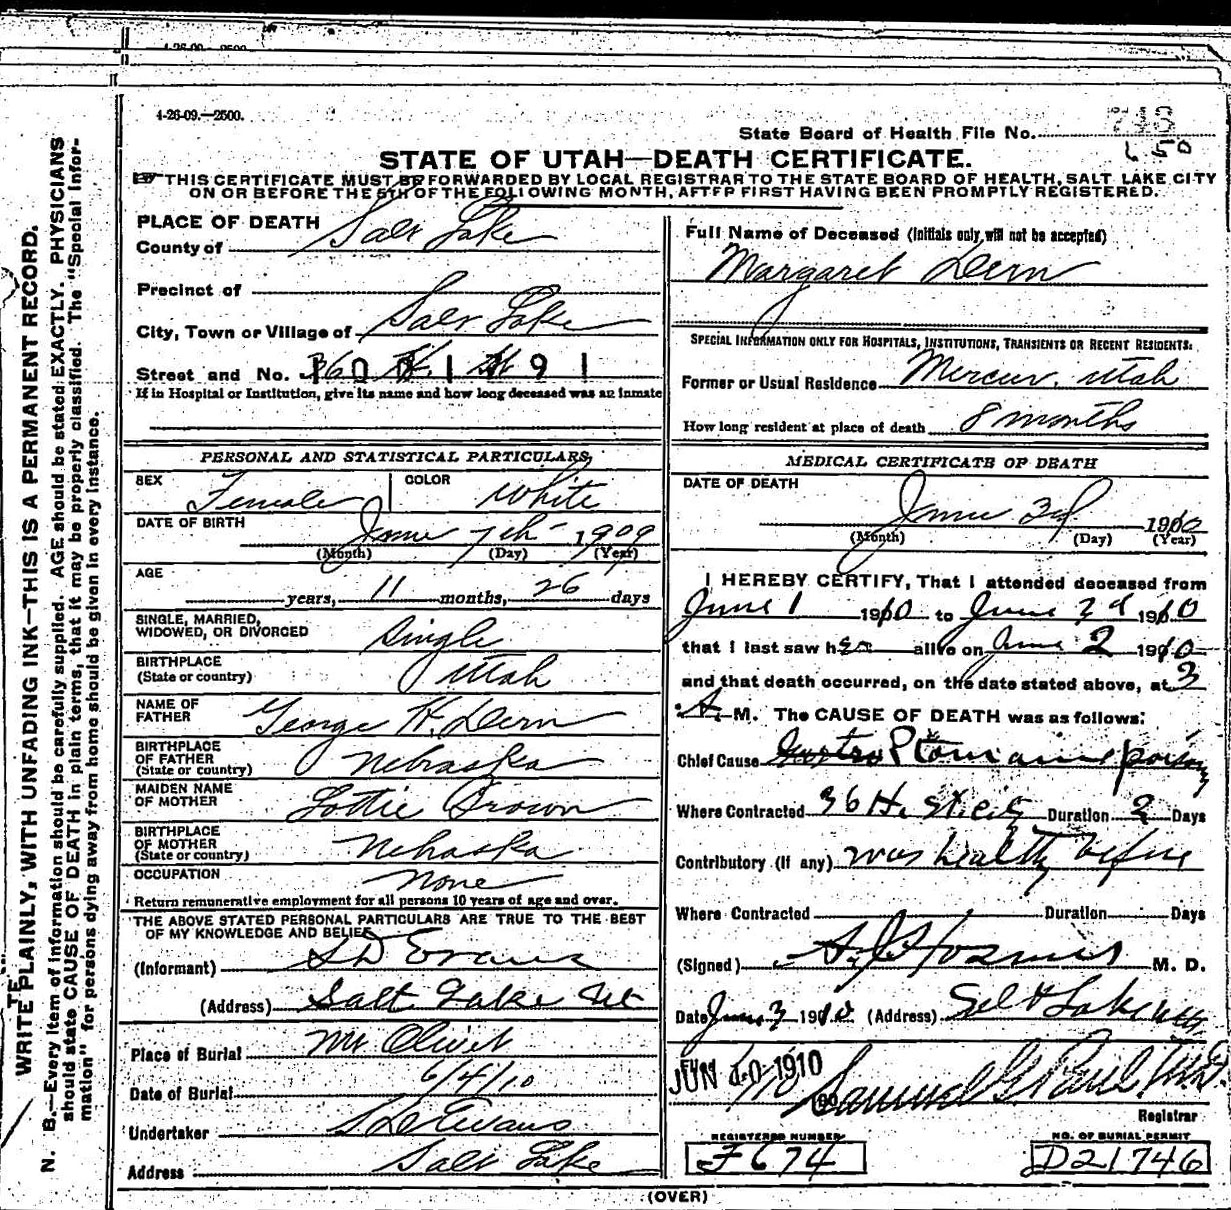 4-26-09.—2500.
State Board of Health File No.
650
STATE OF UTAH—DEATH CERTIFICATE.
THIS CERTIFICATE MUST BE FORWARDED BY LOCAL REGISTRAR TO THE STATE BOARD OF HEALTH, SALT LAKE CITY
ON OR BEFORE THE 5TH OF THE FOLLOWING MONTH, AFTER FIRST HAVING BEEN PROMPTLY REGISTERED.
WRITE PLAINLY, WITH UNFADING INK—THIS IS A PERMANENT RECORD.
N. B.—Every item of information should be carefully supplied. AGE should be stated EXACTLY. PHYSICIANS
should state CAUSE OF DEATH in plain terms, that it may be properly classified. The "Special Infor-
mation" for persons dying away from home should be given in every instance.
PLACE OF DEATH
County of Salt Lake
Precinct of
City, Town or Village of Salt Lake
Street and No. 36 H. St
If in Hospital or Institution, give its name and how long deceased was an inmate
PERSONAL AND STATISTICAL PARTICULARS
SEX Female COLOR White
DATE OF BIRTH June 7th 1909
(Month) (Day) (Year)
AGE
years, 11 months, 26 days
SINGLE, MARRIED,
WIDOWED, OR DIVORCED Single
BIRTHPLACE
(State or country) Utah
NAME OF
FATHER George H. Dern
BIRTHPLACE
OF FATHER
(State or country) Nebraska
MAIDEN NAME
OF MOTHER Lottie Brown
BIRTHPLACE
OF MOTHER
(State or country) Nebraska
OCCUPATION None
Return remunerative employment for all persons 10 years of age and over.
THE ABOVE STATED PERSONAL PARTICULARS ARE TRUE TO THE BEST
OF MY KNOWLEDGE AND BELIEF
(Informant) S D Evans
(Address) Salt Lake Ut
Place of Burial Mt Olivet
Date of Burial 6/4/10
Undertaker S D Evans
Address Salt Lake
Full Name of Deceased (Initials only will not be accepted)
Margaret Dern
SPECIAL INFORMATION ONLY FOR HOSPITALS, INSTITUTIONS, TRANSIENTS OR RECENT RESIDENTS:
Former or Usual Residence Mercur, Utah
How long resident at place of death 8 months
MEDICAL CERTIFICATE OF DEATH
DATE OF DEATH
June 3d 1910
(Month) (Day) (Year)
I HEREBY CERTIFY, That I attended deceased from
June 1 1910 to June 3d 1910
that I last saw her alive on June 2 1910
and that death occurred, on the date stated above, at 3
A. M. The CAUSE OF DEATH was as follows:
Chief Cause Gastro Ptomaine poison
Where Contracted 36 H. St City Duration 2 Days
Contributory (If any) was healthy before
Where Contracted Duration Days
(Signed) M. D.
Date June 3 1910 (Address) Salt Lake
JUN 10 1910
Samuel G. Paul
Registrar
REGISTERED NUMBER
F674
NO. OF BURIAL PERMIT
D21746
(OVER)